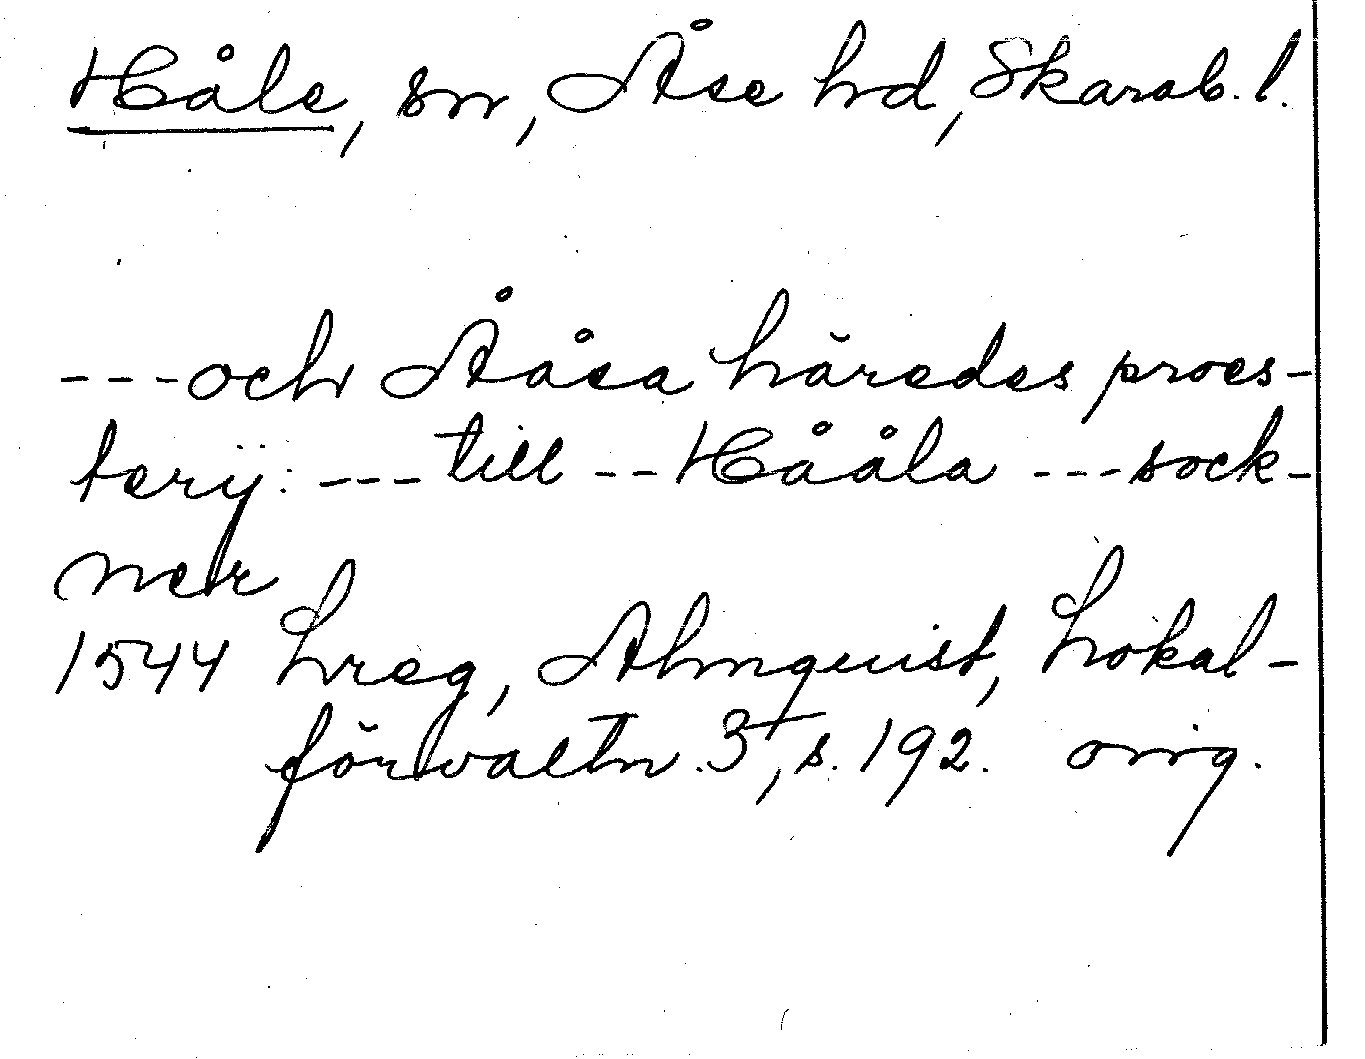 Håle, sn, Åse hd, Skarab. l.
---och Ååsa häredes proes-
terÿ: ---till --Hååla ---sock-
ner
1544 Lreg, Almquist, Lokal-
förvaltn. 3, s. 192. orig.